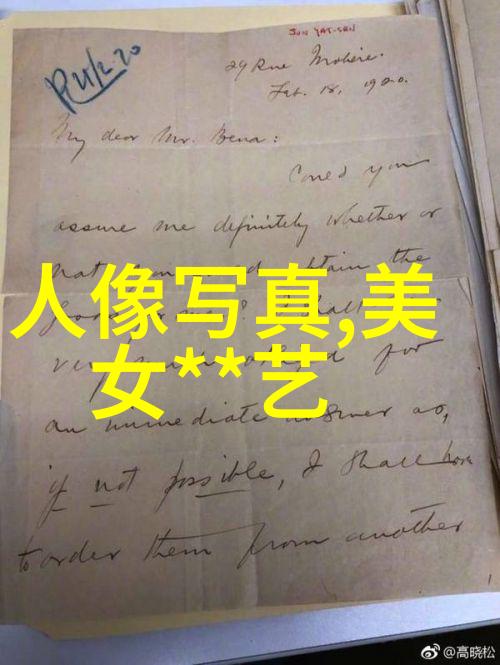 SUN YAT-SEN
R 21/2.20
29 Rue Molière.
Feb. 18, 1920.
My dear Mr. :
Could you
assure me definitely whether or
not obtain the
人像写真,美
for
女**艺
an immediate answer as,
if not possible, I shall have
to order them from another
@高晓松